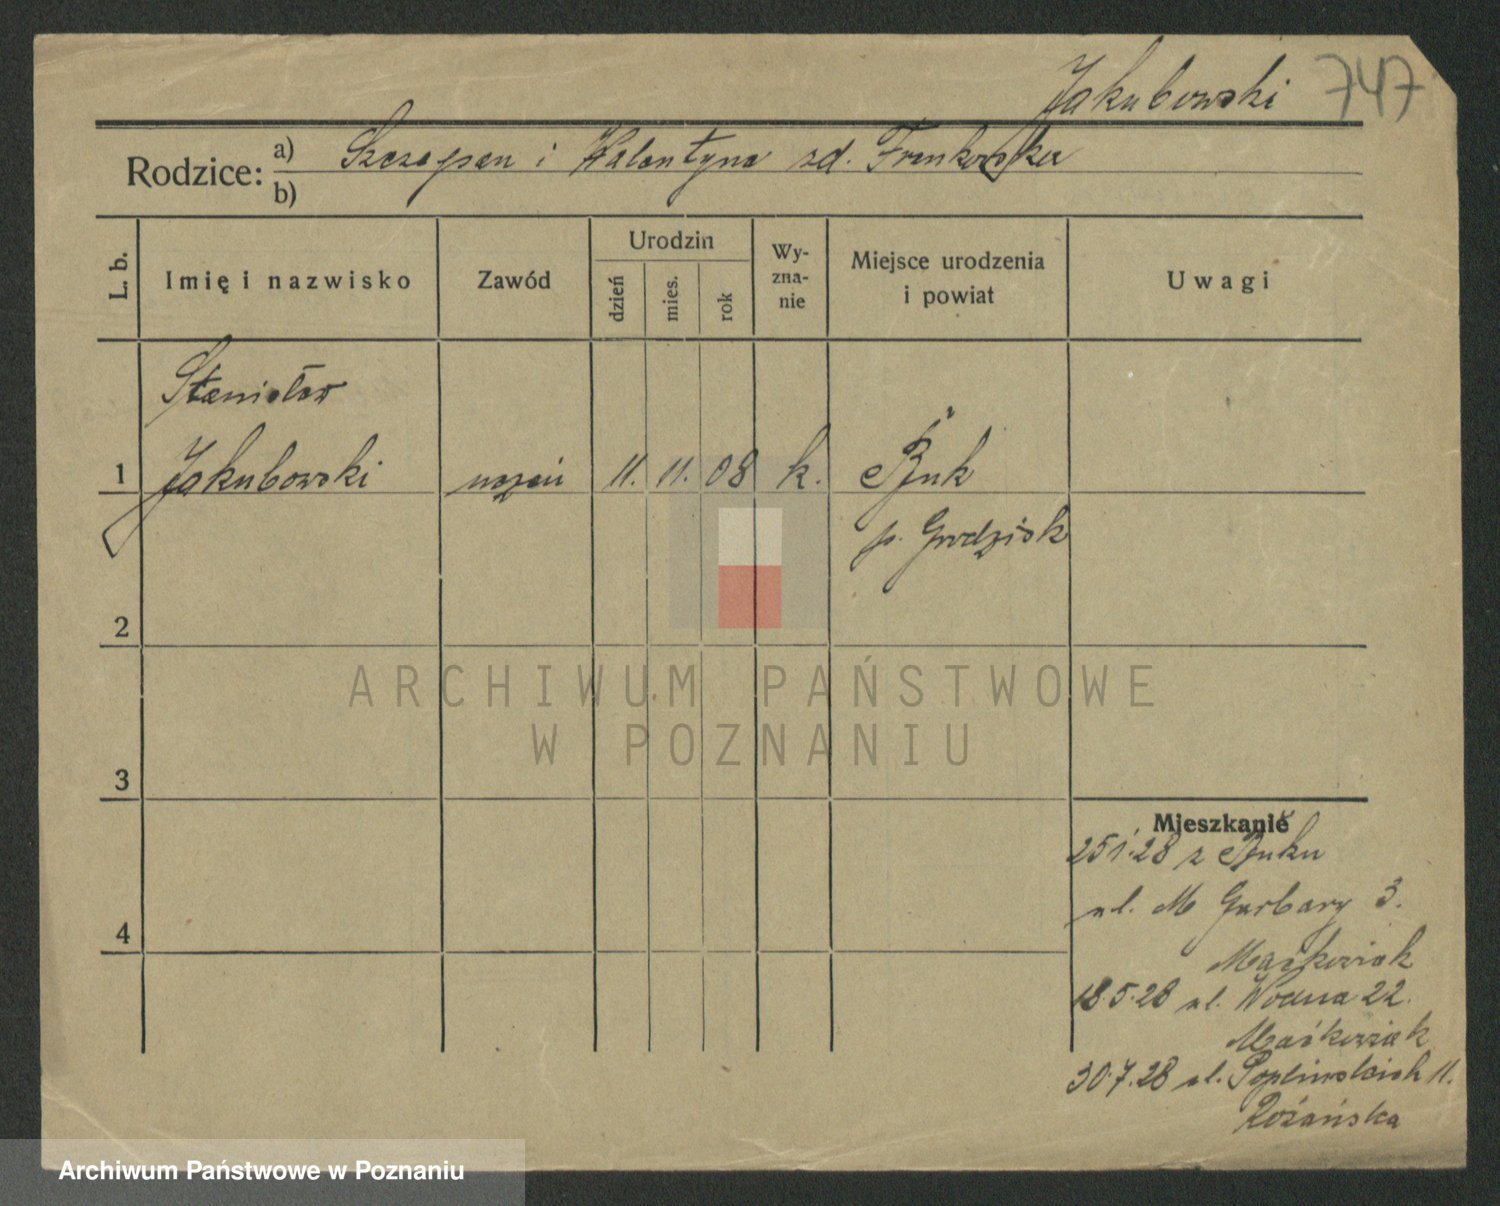 Jakubowski 747
Rodzice: a) Szczepan i Walentyna zd. Frankowska
b)
L. b.
Imię i nazwisko
Zawód
Urodzin
dzień
mies.
rok
Wy-
zna-
nie
Miejsce urodzenia
i powiat
Uwagi
Stanisław
1 Jakubowski uczeń 11. 11. 08 k. Buk
p. Grodzisk
2
3
4
Mieszkanie
25 1. 28 z Buku
ul. M Garbary 3.
Maćkowiak
18.5.28 ul. Wodna 22.
Maćkowiak
30.7.28 ul. Poplińskich 11.
Różańska
ARCHIWUM PAŃSTWOWE
W POZNANIU
Archiwum Państwowe w Poznaniu